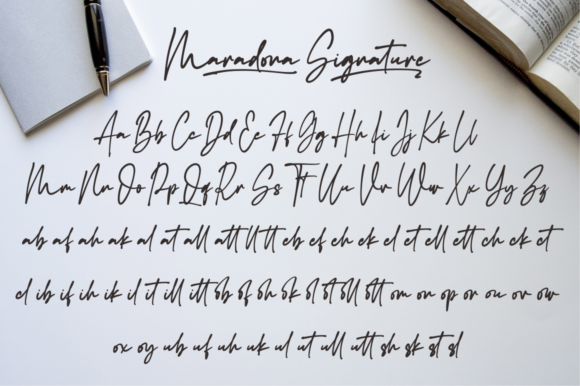 Maradona Signature
Aa Bb Cc Dd Ee Ff Gg Hh Ii Jj Kk Ll
Mm Nn Oo Pp Qq Rr Ss Tt Uu Vv Ww Xx Yy Zz
ab af ah ak al at all att ll tt eb ef eh ek el et ell ett ch ck ct
cl ib if ih ik il it ill itt ob of oh ok ol ot oll ott om on op or ou ov ow
ox oy ub uf uh uk ul ut ull utt sh sk st sl